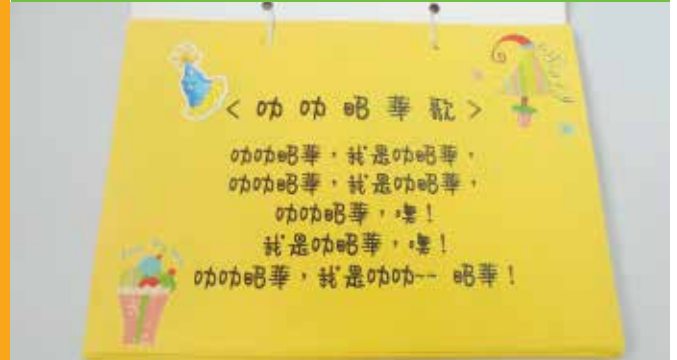 <叻叻昭華歌>
叻叻昭華，我是叻昭華，
叻叻昭華，我是叻昭華，
叻叻昭華，嘿！
我是叻昭華，嘿！
叻叻昭華，我是叻叻~~ 昭華！